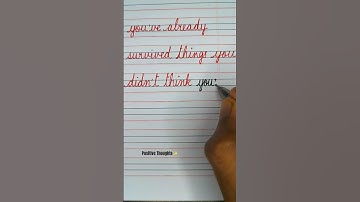 you've already
survived things you
didn't think you'
Positive Thoughts